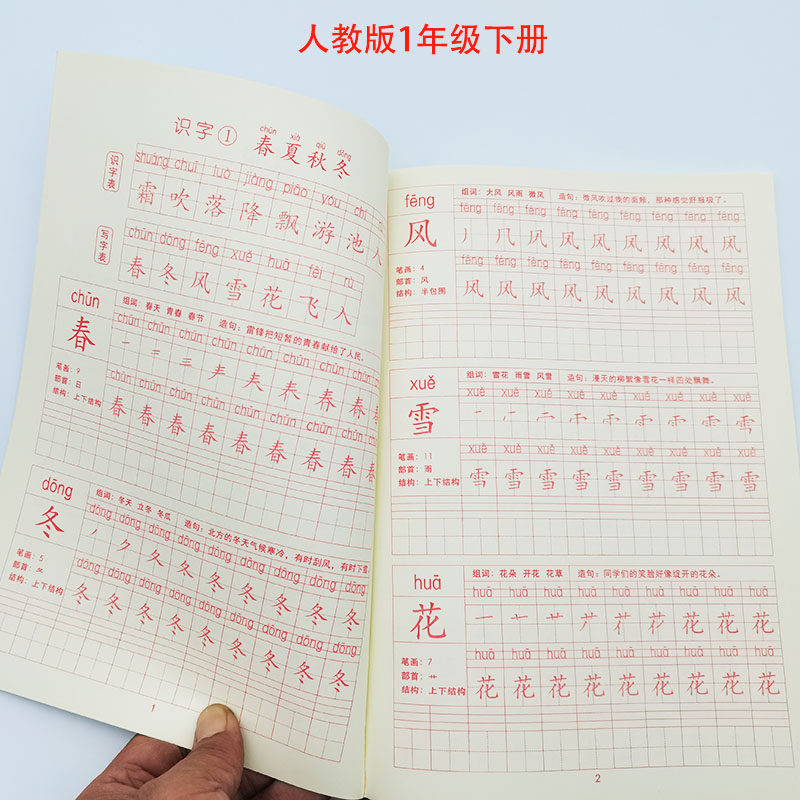 人教版1年级下册
识字①
chūn xià qiū dōng
春夏秋冬
识字表
shuāng chuī luò jiàng piāo yóu chí
霜 吹 落 降 飘 游 池 入
写字表
chūn dōng fēng xuě huā fēi rù
春 冬 风 雪 花 飞 入
chūn
春
组词：春天 青春 春节 造句：雷锋把短暂的青春献给了人民。
chūn chūn chūn chūn chūn chūn chūn chūn chūn
笔画：9
部首：日
结构：上下结构
chūn chūn chūn chūn chūn chūn chūn chūn chūn
春 春 春 春 春 春 春 春 春
dōng
冬
组词：冬天 立冬 冬瓜 造句：北方的冬天气候寒冷，有时刮风，有时下雪
dōng dōng dōng dōng dōng dōng dōng dōng dōng
笔画：5
部首：夂
结构：上下结构
dōng dōng dōng dōng dōng dōng dōng dōng dōng
冬 冬 冬 冬 冬 冬 冬 冬 冬
1
fēng
风
组词：大风 风雨 微风 造句：微风吹过我的面颊，那种感觉舒服极了。
fēng fēng fēng fēng fēng fēng fēng fēng fēng
丿 几 风 风 风 风 风 风 风
笔画：4
部首：风
结构：半包围
fēng fēng fēng fēng fēng fēng fēng fēng fēng
风 风 风 风 风 风 风 风 风
xuě
雪
组词：雪花 雨雪 风雪 造句：漫天的柳絮像雪花一样四处飘舞。
xuě xuě xuě xuě xuě xuě xuě xuě xuě
笔画：11
部首：雨
结构：上下结构
xuě xuě xuě xuě xuě xuě xuě xuě xuě
雪 雪 雪 雪 雪 雪 雪 雪 雪
huā
花
组词：花朵 开花 花草 造句：同学们的笑脸好像绽开的花朵。
huā huā huā huā huā huā huā huā huā
笔画：7
部首：艹
结构：上下结构
huā huā huā huā huā huā huā huā huā
花 花 花 花 花 花 花 花 花
2